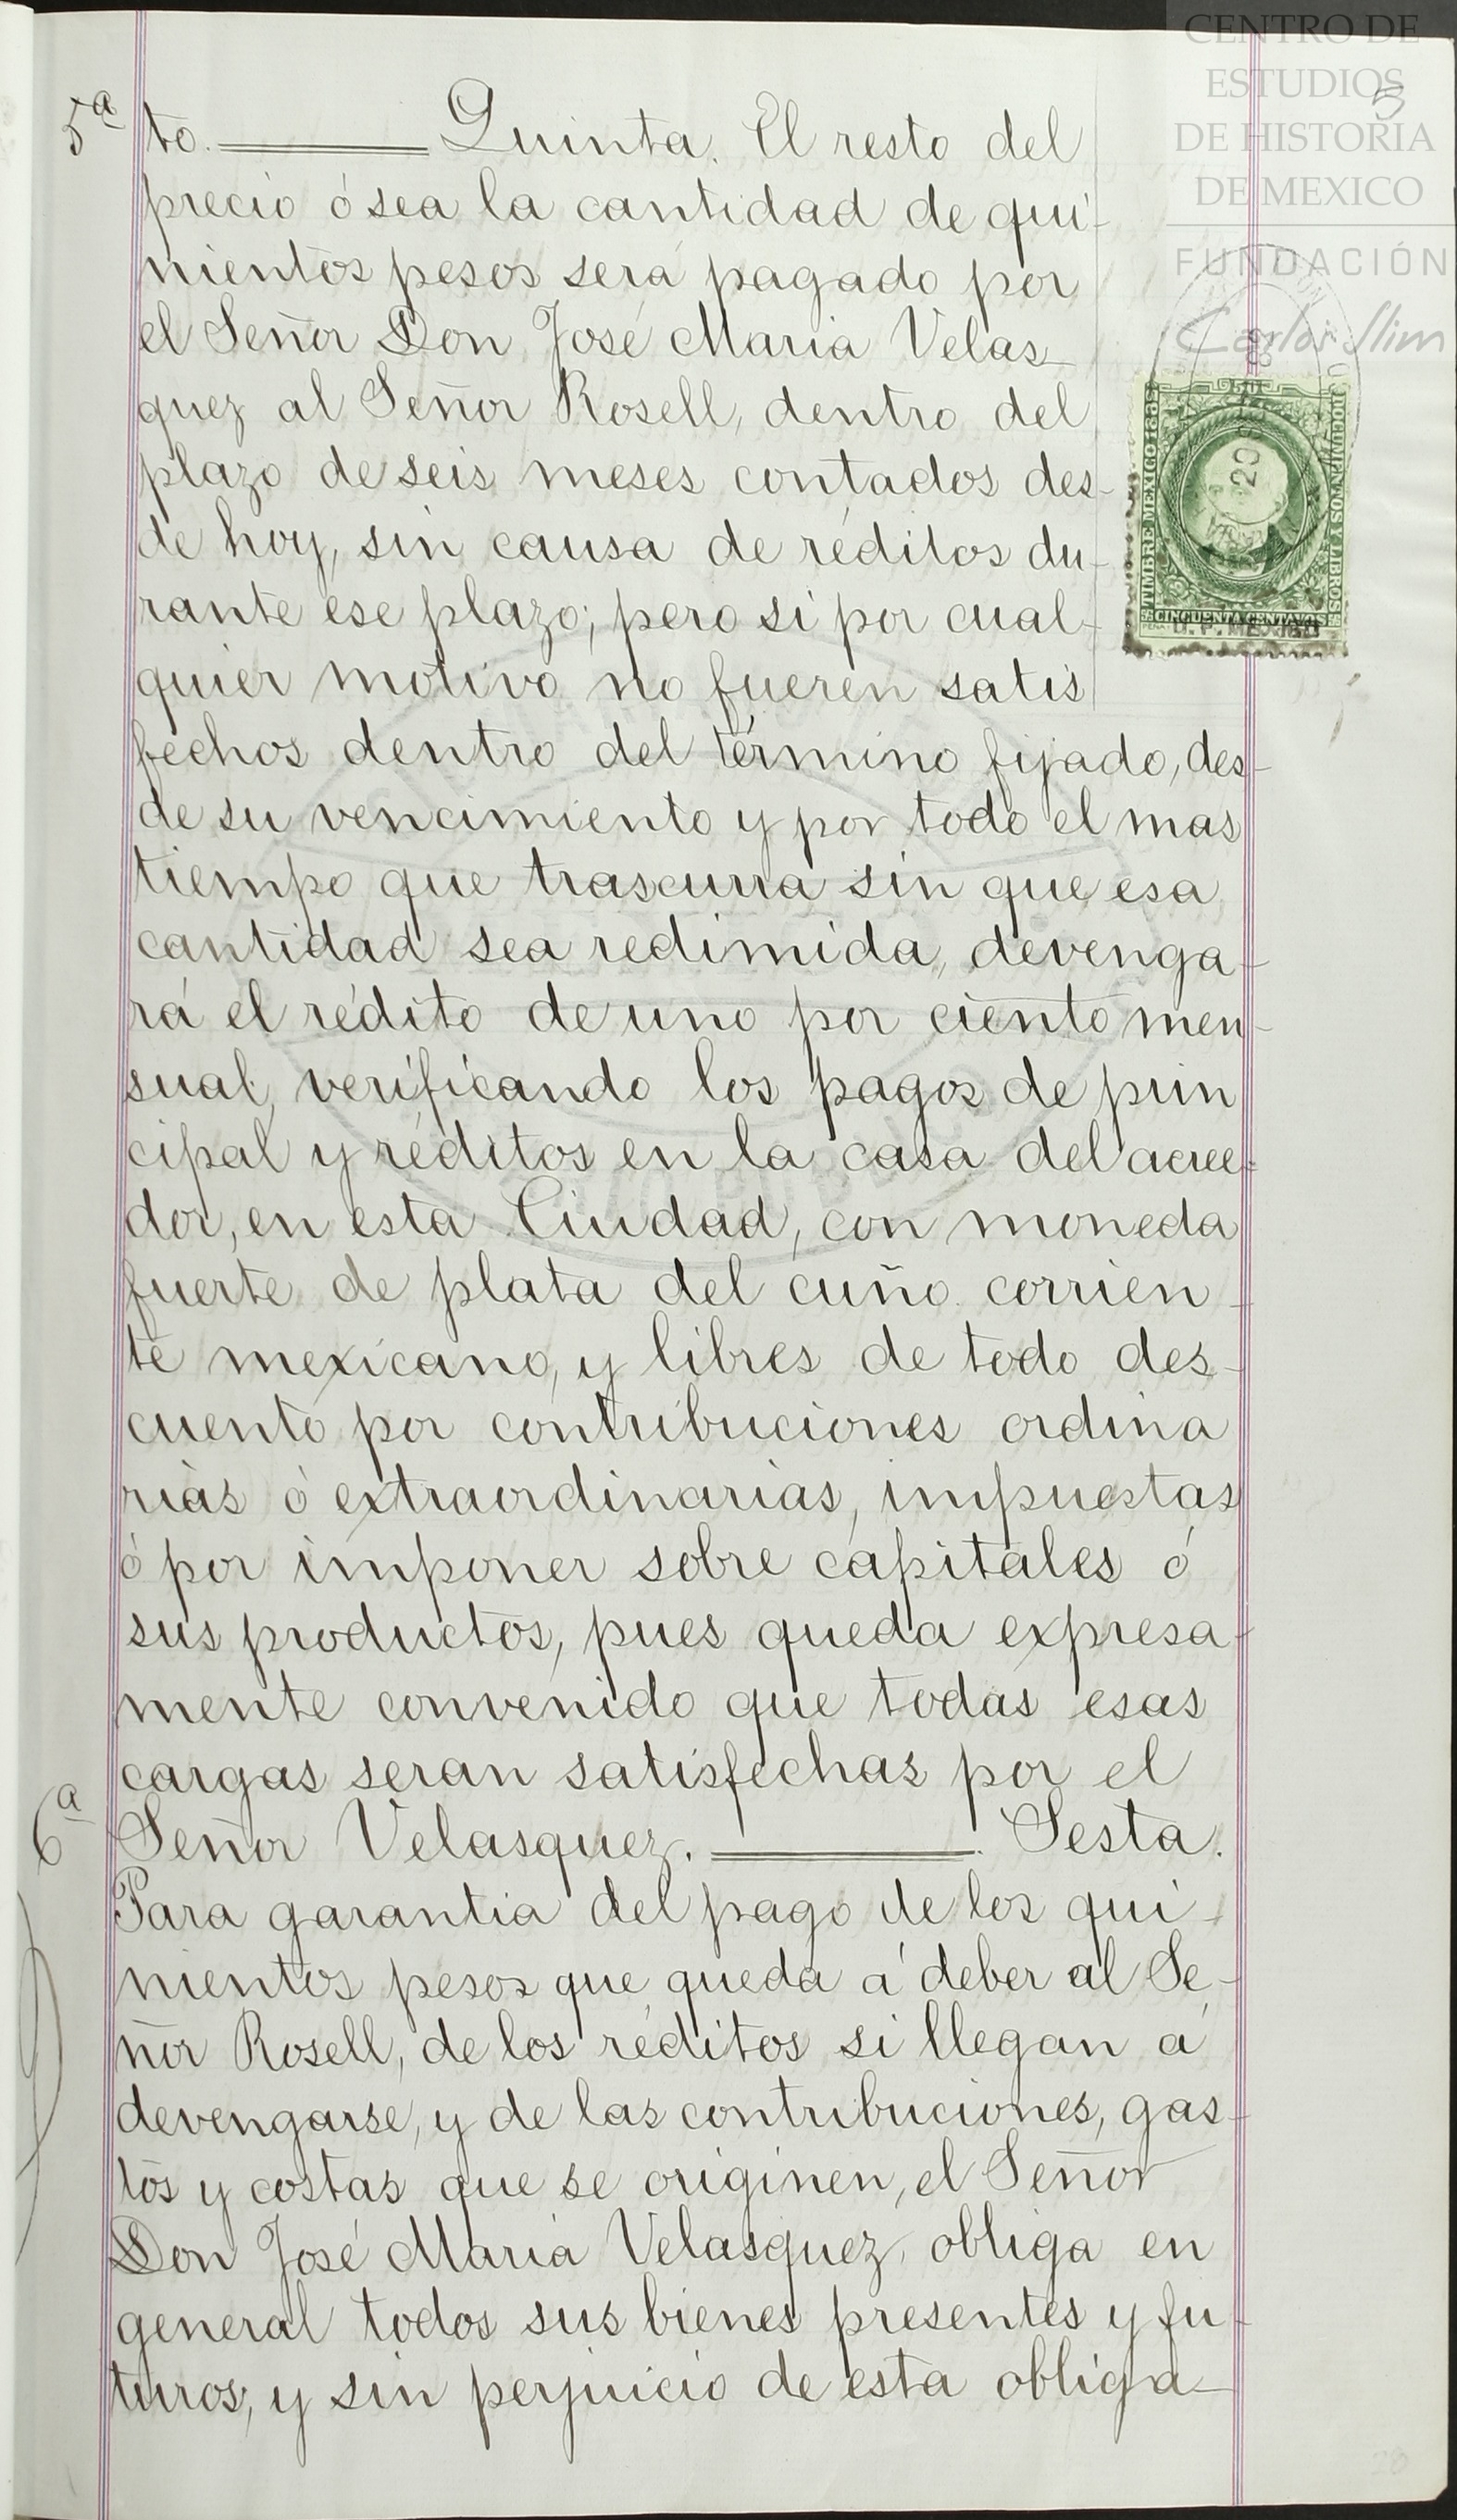 CENTRO DE
ESTUDIOS
DE HISTORIA
DE MEXICO
FUNDACIÓN
Carlos Slim
5
5ª
to. Quinta. El resto del
precio ó sea la cantidad de qui-
nientos pesos será pagado por
el Señor Don José Maria Velas-
quez al Señor Rosell, dentro del
plazo de seis meses contados des-
de hoy, sin causa de réditos du-
rante ese plazo; pero si por cual-
quier motivo no fueren satis
fechos dentro del término fijado, des-
de su vencimiento y por todo el mas
tiempo que trascurra sin que esa
cantidad sea redimida, devenga-
rá el rédito de uno por ciento men-
sual, verificando los pagos de prin
cipal y réditos en la casa del acree-
dor, en esta Ciudad, con moneda
fuerte de plata del cuño corrien-
te mexicano, y libres de todo des-
cuento por contribuciones ordina
rias ó extraordinarias, impuestas
ó por imponer sobre capitales ó
sus productos, pues queda expresa-
mente convenido que todas esas
cargas seran satisfechas por el
6ª
Señor Velasquez. Sesta.
Para garantia del pago de los qui-
nientos pesos que queda á deber al Se-
ñor Rosell, de los réditos si llegan á
devengarse, y de las contribuciones, gas-
tos y costas que se originen, el Señor
Don José Maria Velasquez, obliga en
general todos sus bienes presentes y fu-
turos; y sin perjuicio de esta obliga-
TIMBRE MEXICO 188
50
DOCUMENTOS Y LIBROS
CINCUENTA CENTAVOS
D. F. MEXICO
20
28